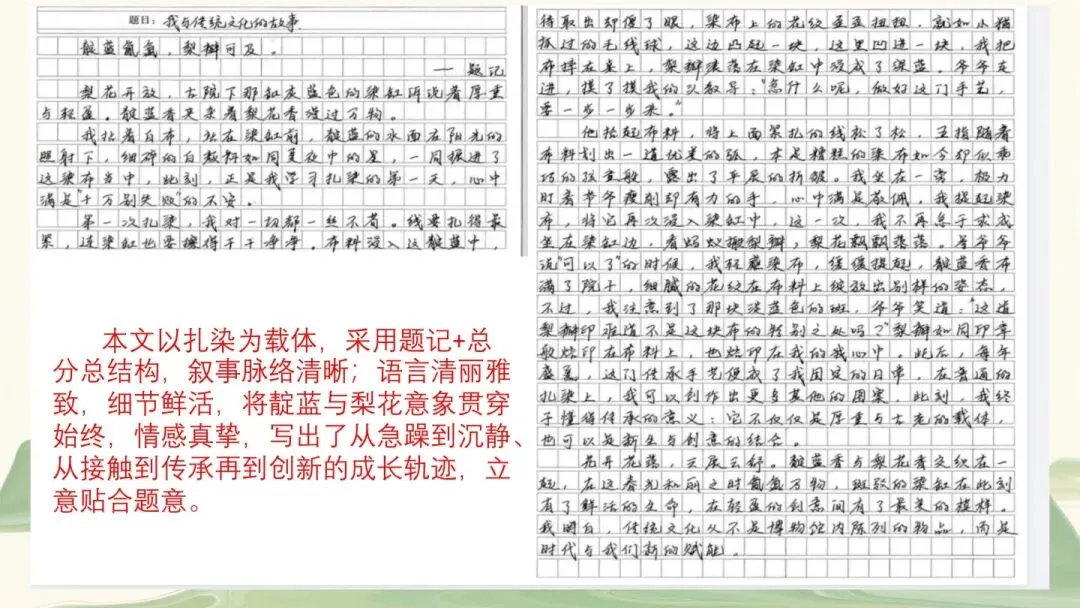 题目：我与传统文化的故事
靛蓝氤氲，梨瓣可及。
——题记
梨花开放，古院下那缸灰蓝色的染缸诉说着厚重
与轻盈。靛蓝香夹杂着梨花香漫过万物。
我拈着白布，站在染缸前，靛蓝的水面在阳光的
照射下，细碎的白颗粒如同星夜中的星，一同摄进了
这染布当中，此刻，正是我学习扎染的第一天，心中
满是“千万别失败”的不安。
第一次扎染，我对一切都一丝不苟。线要扎得最
紧，连染缸也要擦得干干净净。布料没入这靛蓝中，
待取出却傻了眼，染布上的花纹歪歪扭扭，就如小猫
抓过的毛线球，这边凸起一块，这里凹进一块，我把
布摔在桌上，梨瓣淡落在染缸中没成了深蓝。爷爷走
进，摸了摸我的头教导：“急什么呢，做好这门手艺，
要一步一步来。”
他拈起布料，将上面紧扎的线松了松，五指随着
布料划出一道优美的弧，本是糟糕的染布如今却似乖
巧的孩童般，露出了平展的折皱。我坐在一旁，极力
盯着爷爷瘦削却有力的手，心中满是敬佩。我提起染
布，将它再次没入染缸中，这一次，我不再急于求成
坐在染缸边，看蚂蚁搬梨瓣，梨花飘飘落落。等爷爷
说“可以了”的时候，我轻蘸染布，缓缓提起，靛蓝香布
满了院子，细腻的花纹在布料上绽放出别样的姿态，
不过，我注意到了那块淡蓝色的斑，爷爷笑道：“这道
梨瓣印难道不是这块布的特别之处吗？”梨瓣如同印章
般烙印在布料上，也烙印在我的我心中。此后，每年
盛夏，这门传承手艺便成了我固定的日常，在普通的
扎染上，我可以创作出更与其他的图案，此刻，我终
于懂得传承的意义：它不仅仅是厚重与古老的载体，
也可以是新生与创意的结合。
花开花落，云展云舒。靛蓝香与梨花香交织在一
起，在这春光和丽之时氤氲万物，斑驳的染缸在此刻
有了鲜活的生命，在轻盈的创意间有了最美的模样。
我明白，传统文化从不是博物馆内陈列的物品，而是
时代与我们新的赋能。
本文以扎染为载体，采用题记+总
分总结构，叙事脉络清晰；语言清丽雅
致，细节鲜活，将靛蓝与梨花意象贯穿
始终，情感真挚，写出了从急躁到沉静、
从接触到传承再到创新的成长轨迹，立
意贴合题意。